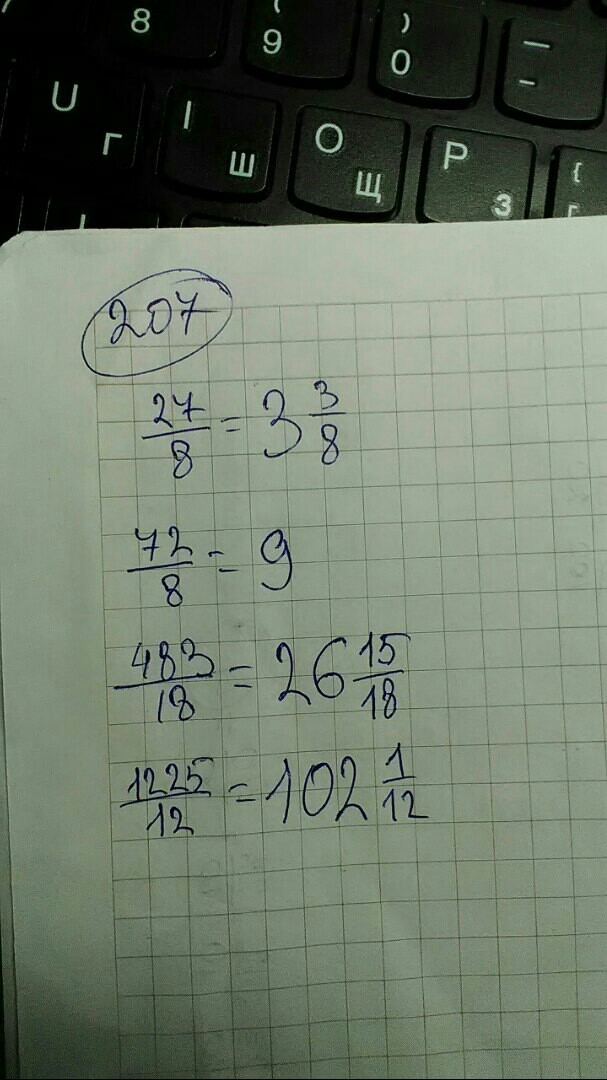 8
( 9
) 0
— -
U Г
I Ш
O Щ
P З
{
207
27/8 = 3 3/8
72/8 = 9
483/18 = 26 15/18
1225/12 = 102 1/12